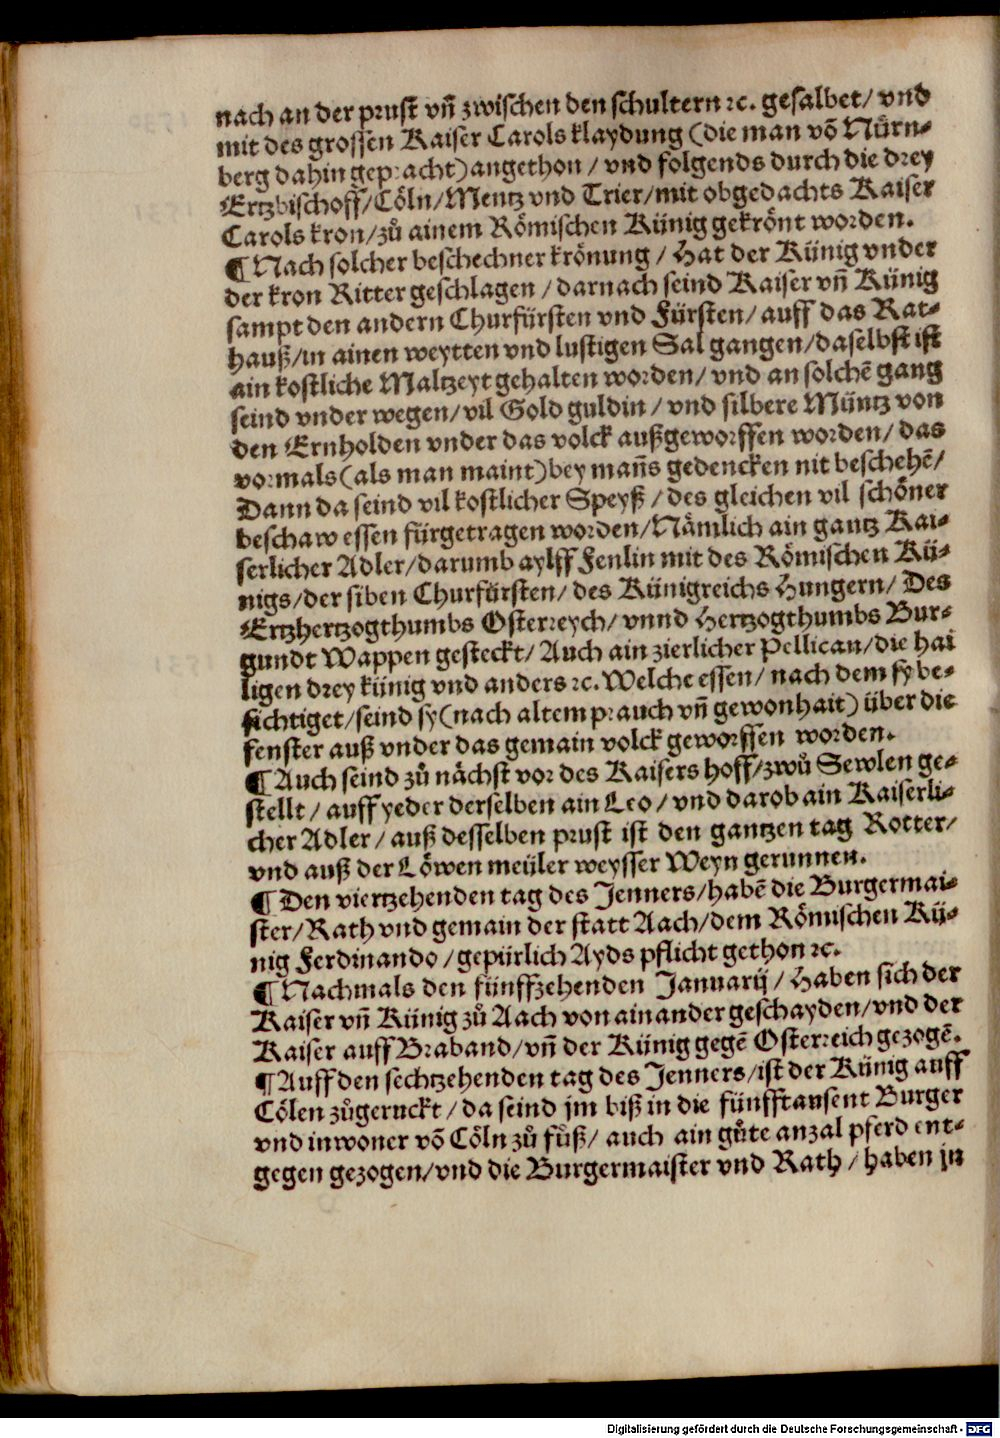 nach an der prust vn̄ zwischen den schultern ꝛc. gesalbet/ vnd
mit des grossen Kaiser Carols klaydung (die man võ Nürn-
berg dahin gepracht) angethon / vnd folgends durch die drey
Ertzbischoff/ Cöln/ Mentz vnd Trier/ mit obgedachts Kaiser
Carols kron/ zů ainem Römischen Künig gekrönt worden.
¶ Nach solcher beschechner krönung / Hat der Künig vnder
der kron Ritter geschlagen / darnach seind Kaiser vn̄ Künig
sampt den andern Churfürsten vnd Fürsten/ auff das Rat-
hauß/ in ainen weytten vnd lustigen Sal gangen/ daselbst ist
ain kostliche Maltzeyt gehalten worden/ vnd an solchē gang
seind vnder wegen/ vil Gold guldin / vnd silbere Müntz von
den Ernholden vnder das volck außgeworffen worden/ das
vormals (als man maint) bey man̄s gedencken nit beschehē/
Dann da seind vil kostlicher Speyß / des gleichen vil schöner
beschaw essen fürgetragen worden/ Nämlich ain gantz Kai-
serlicher Adler/ darumb aylff Fenlin mit des Römischen Kü-
nigs/ der siben Churfürsten/ des Künigreichs Hungern/ Des
Ertzhertzogthumbs Osterreych/ vnnd Hertzogthumbs Bur-
gundt Wappen gesteckt/ Auch ain zierlicher Pellican/ die hai
ligen drey künig vnd anders ꝛc. Welche essen/ nach dem sy be-
sichtiget/ seind sy (nach altem prauch vn̄ gewonhait) über die
fenster auß vnder das gemain volck geworffen worden.
¶ Auch seind zů nächst vor des Kaisers hoff/ zwů Sewlen ge-
stellt / auff yeder derselben ain Leo / vnd darob ain Kaiserli-
cher Adler / auß desselben prust ist den gantzen tag Rotter/
vnd auß der Löwen meüler weysser Weyn gerunnen.
¶ Den viertzehenden tag des Jenners/ habē die Burgermai-
ster/ Rath vnd gemain der statt Aach/ dem Römischen Kü-
nig Ferdinando / gepürlich Ayds pflicht gethon ꝛc.
¶ Nachmals den fünffzehenden Januarij / Haben sich der
Kaiser vn̄ Künig zů Aach von ainander geschayden/ vnd der
Kaiser auff Braband/ vn̄ der Künig gegē Osterreich gezogē.
¶ Auff den sechtzehenden tag des Jenners/ ist der Künig auff
Cölen zůgeruckt / da seind jm biß in die fünfftausent Burger
vnd inwoner võ Cöln zů fůß/ auch ain gůte anzal pferd ent-
gegen gezogen/ vnd die Burgermaister vnd Rath / haben jn
Digitalisierung gefördert durch die Deutsche Forschungsgemeinschaft - DFG